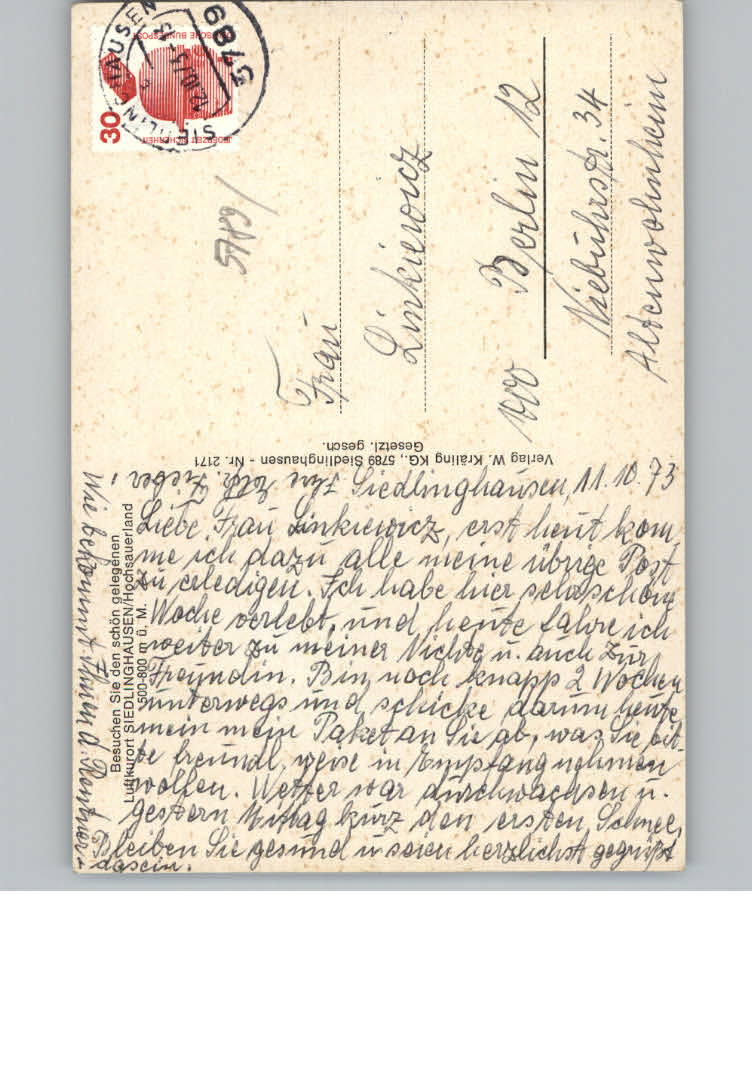 Siedlinghausen, 11.10.73
Liebe Frau Linkiewicz, erst heut kom-
me ich dazu alle meine übrige Post
zu erledigen. Ich habe hier sehr schöne
Woche verlebt, und heute fahre ich
weiter zu meiner Nichte u. auch zur
Freundin. Bin noch knapp 2 Wochen
unterwegs und schicke darum heute
mein Paket an Sie ab, was Sie bit-
te freundl. weise in Empfang nehmen
wollen. Wetter war durchwachsen u.
gestern Mittag kurz den ersten Schnee,
Bleiben Sie gesund u seien herzlichst gegrüßt
Ihre
Wie bekommt Ihnen d. Rentner-
dasein.
Besuchen Sie den schön gelegenen
Luftkurort SIEDLINGHAUSEN/Hochsauerland
500-800 m ü. M.
Verlag W. Kräling KG., 5789 Siedlinghausen - Nr. 2171
Gesetzl. gesch.
Frau
Linkiewicz
1000 Berlin 12
Niebuhrstr. 34
Altenwohnheim
5789
30
DEUTSCHE BUNDESPOST
JEDERZEIT SICHERHEIT
5789
SIEDLINGHAUSEN
12.10.73